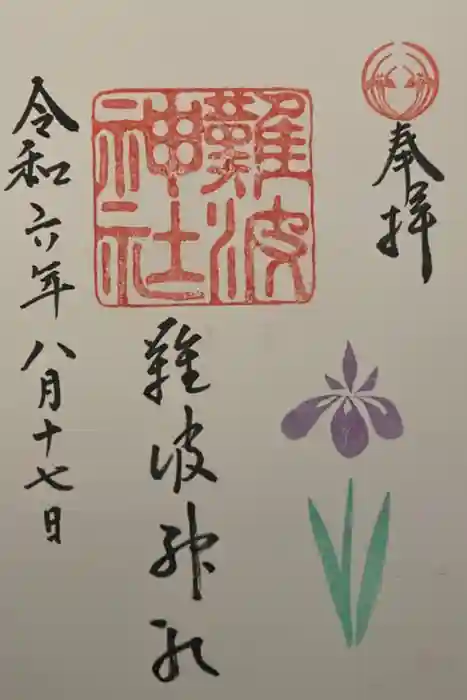 奉拝
難波
神社
難波神社
令和六年八月十七日